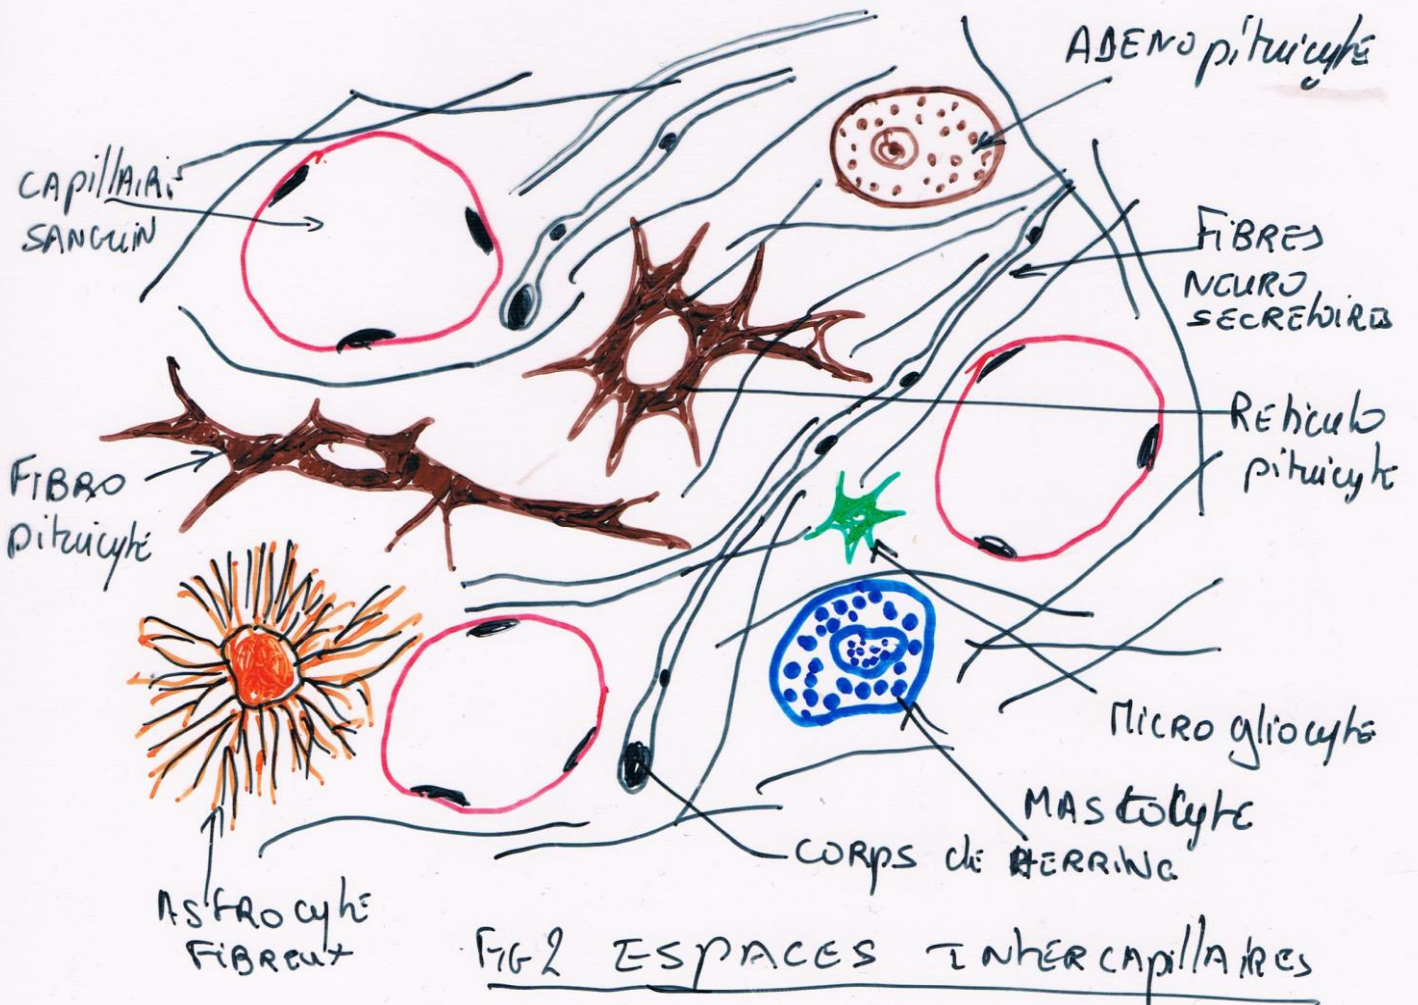 ADENO pituicyte
CAPillAIRE
SANGUIN
FIBRES
NEURO
SECRETOIRES
Reticulo
pituicyte
FIBRO
pituicyte
MICRO gliocyte
MASTOCYTE
CORPS de HERRING
ASTROCYTE
FIBREUX
FIG 2 ESPACES INTERCAPILLAIRES